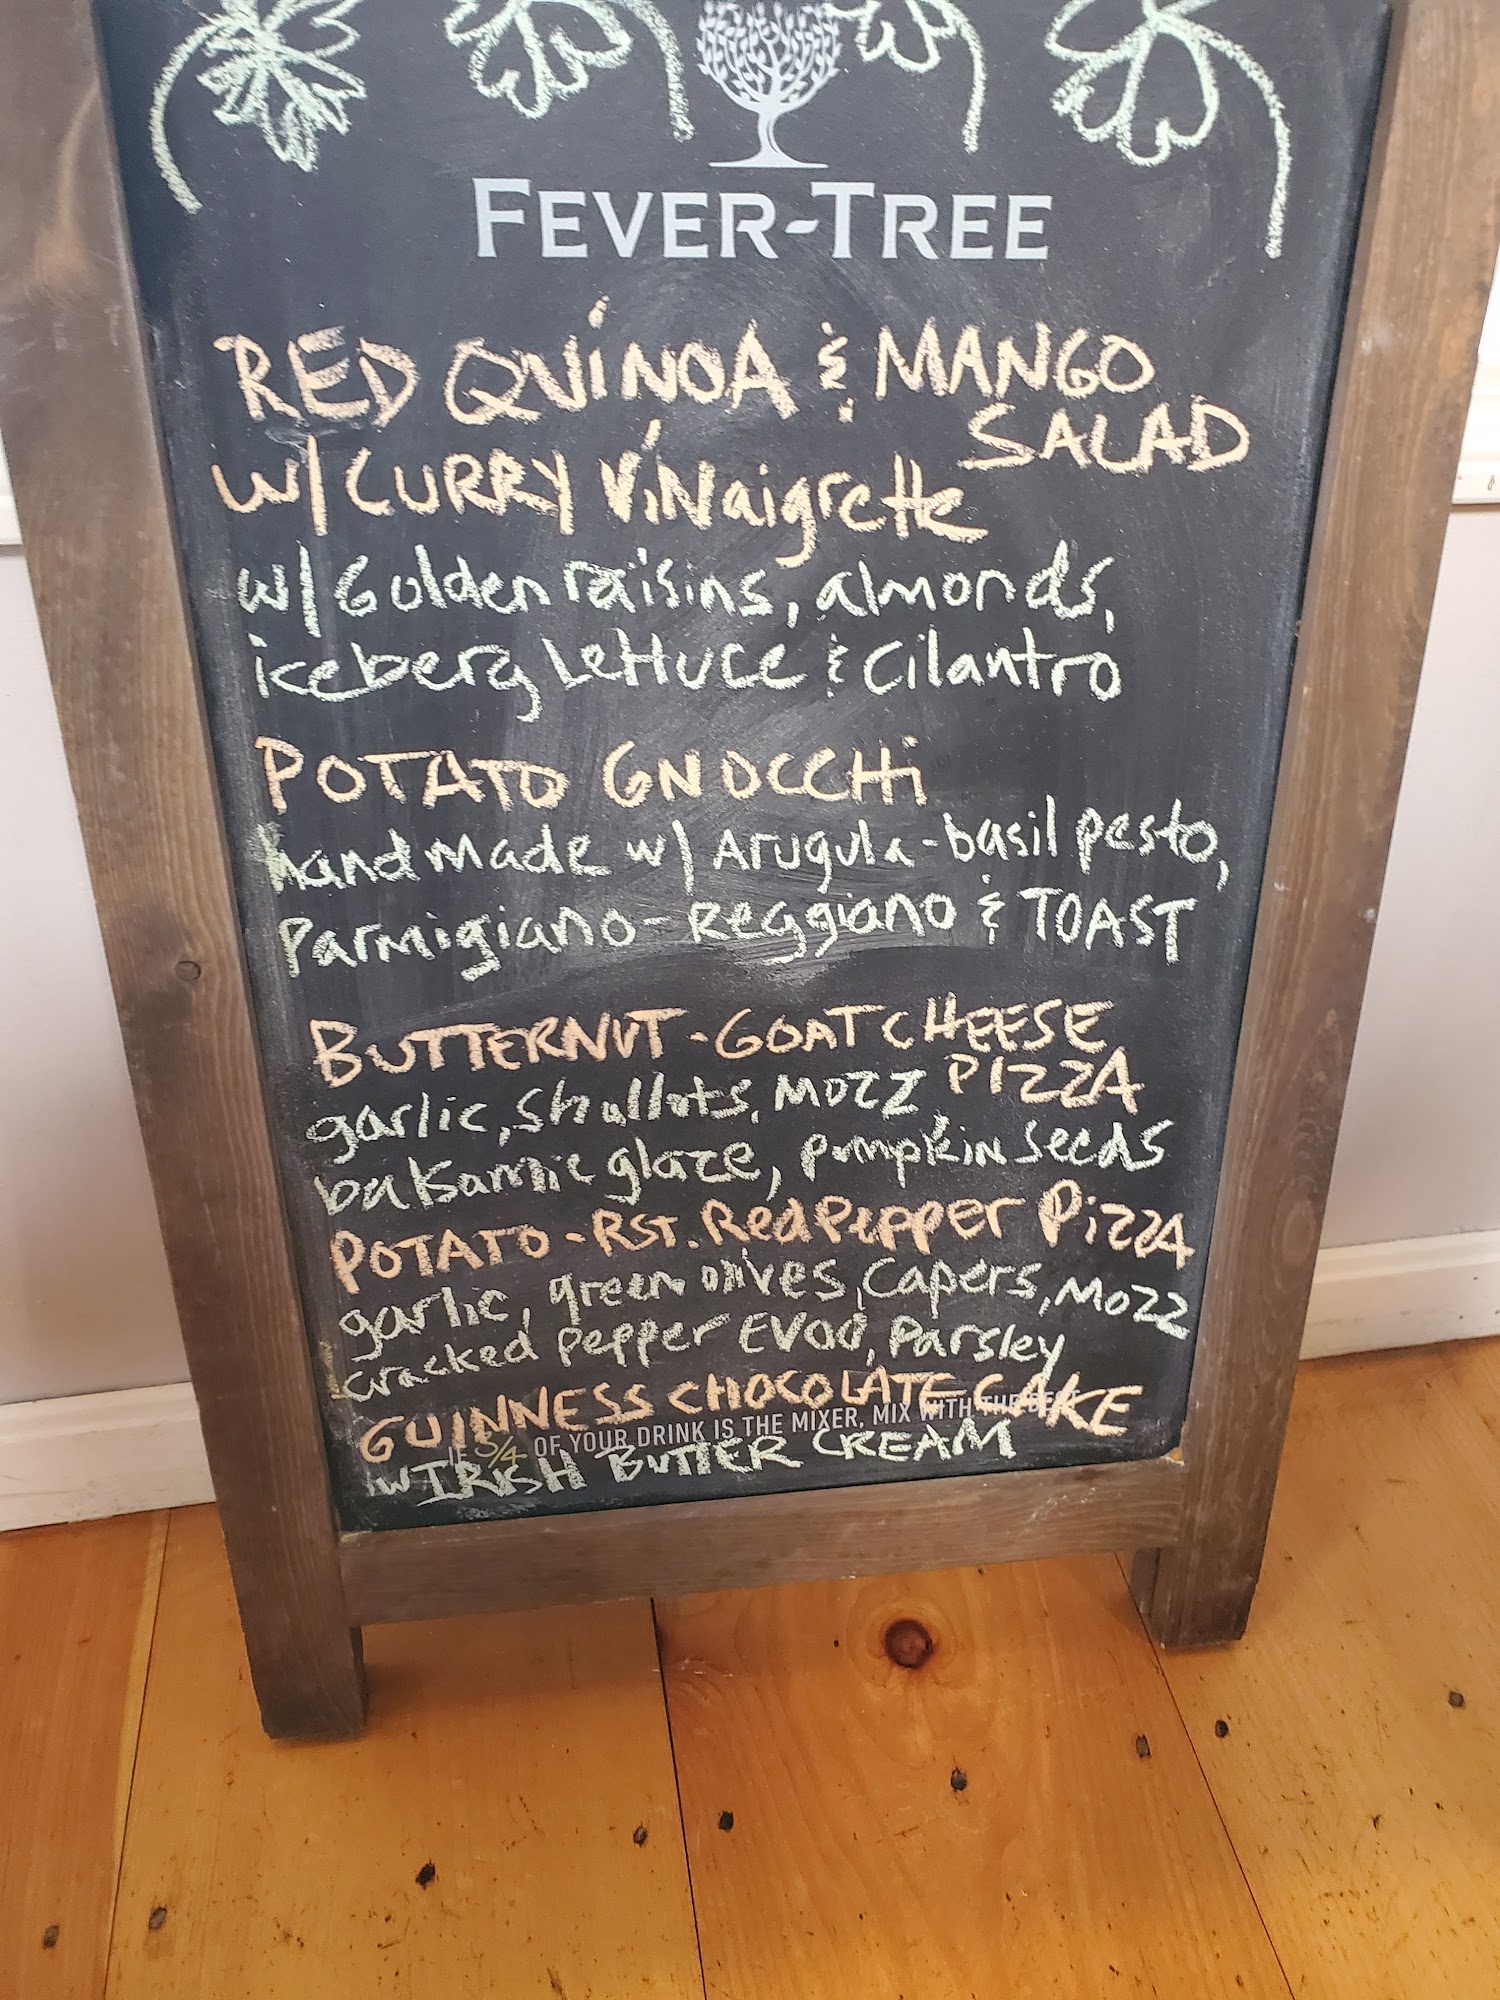 FEVER-TREE
RED QUINOA & MANGO
SALAD
W/ CURRY ViNaigrette
w/ Golden raisins, almonds,
iceberg Lettuce & Cilantro
POTATO GNOCCHi
handmade w/ Arugula-basil pesto,
Parmigiano-Reggiano & TOAST
BUTTERNUT-GOAT CHEESE
PIZZA
garlic, shallots, MOZZ
balsamic glaze, pumpkin seeds
POTATO-RST. Red Pepper PizzA
garlic, green olives, Capers, MOZZ
cracked Pepper EVOO, Parsley
GUINNESS CHOCOLATE CAKE
IF 3/4 OF YOUR DRINK IS THE MIXER, MIX WITH THE BEST
W IRISH BUTTER CREAM